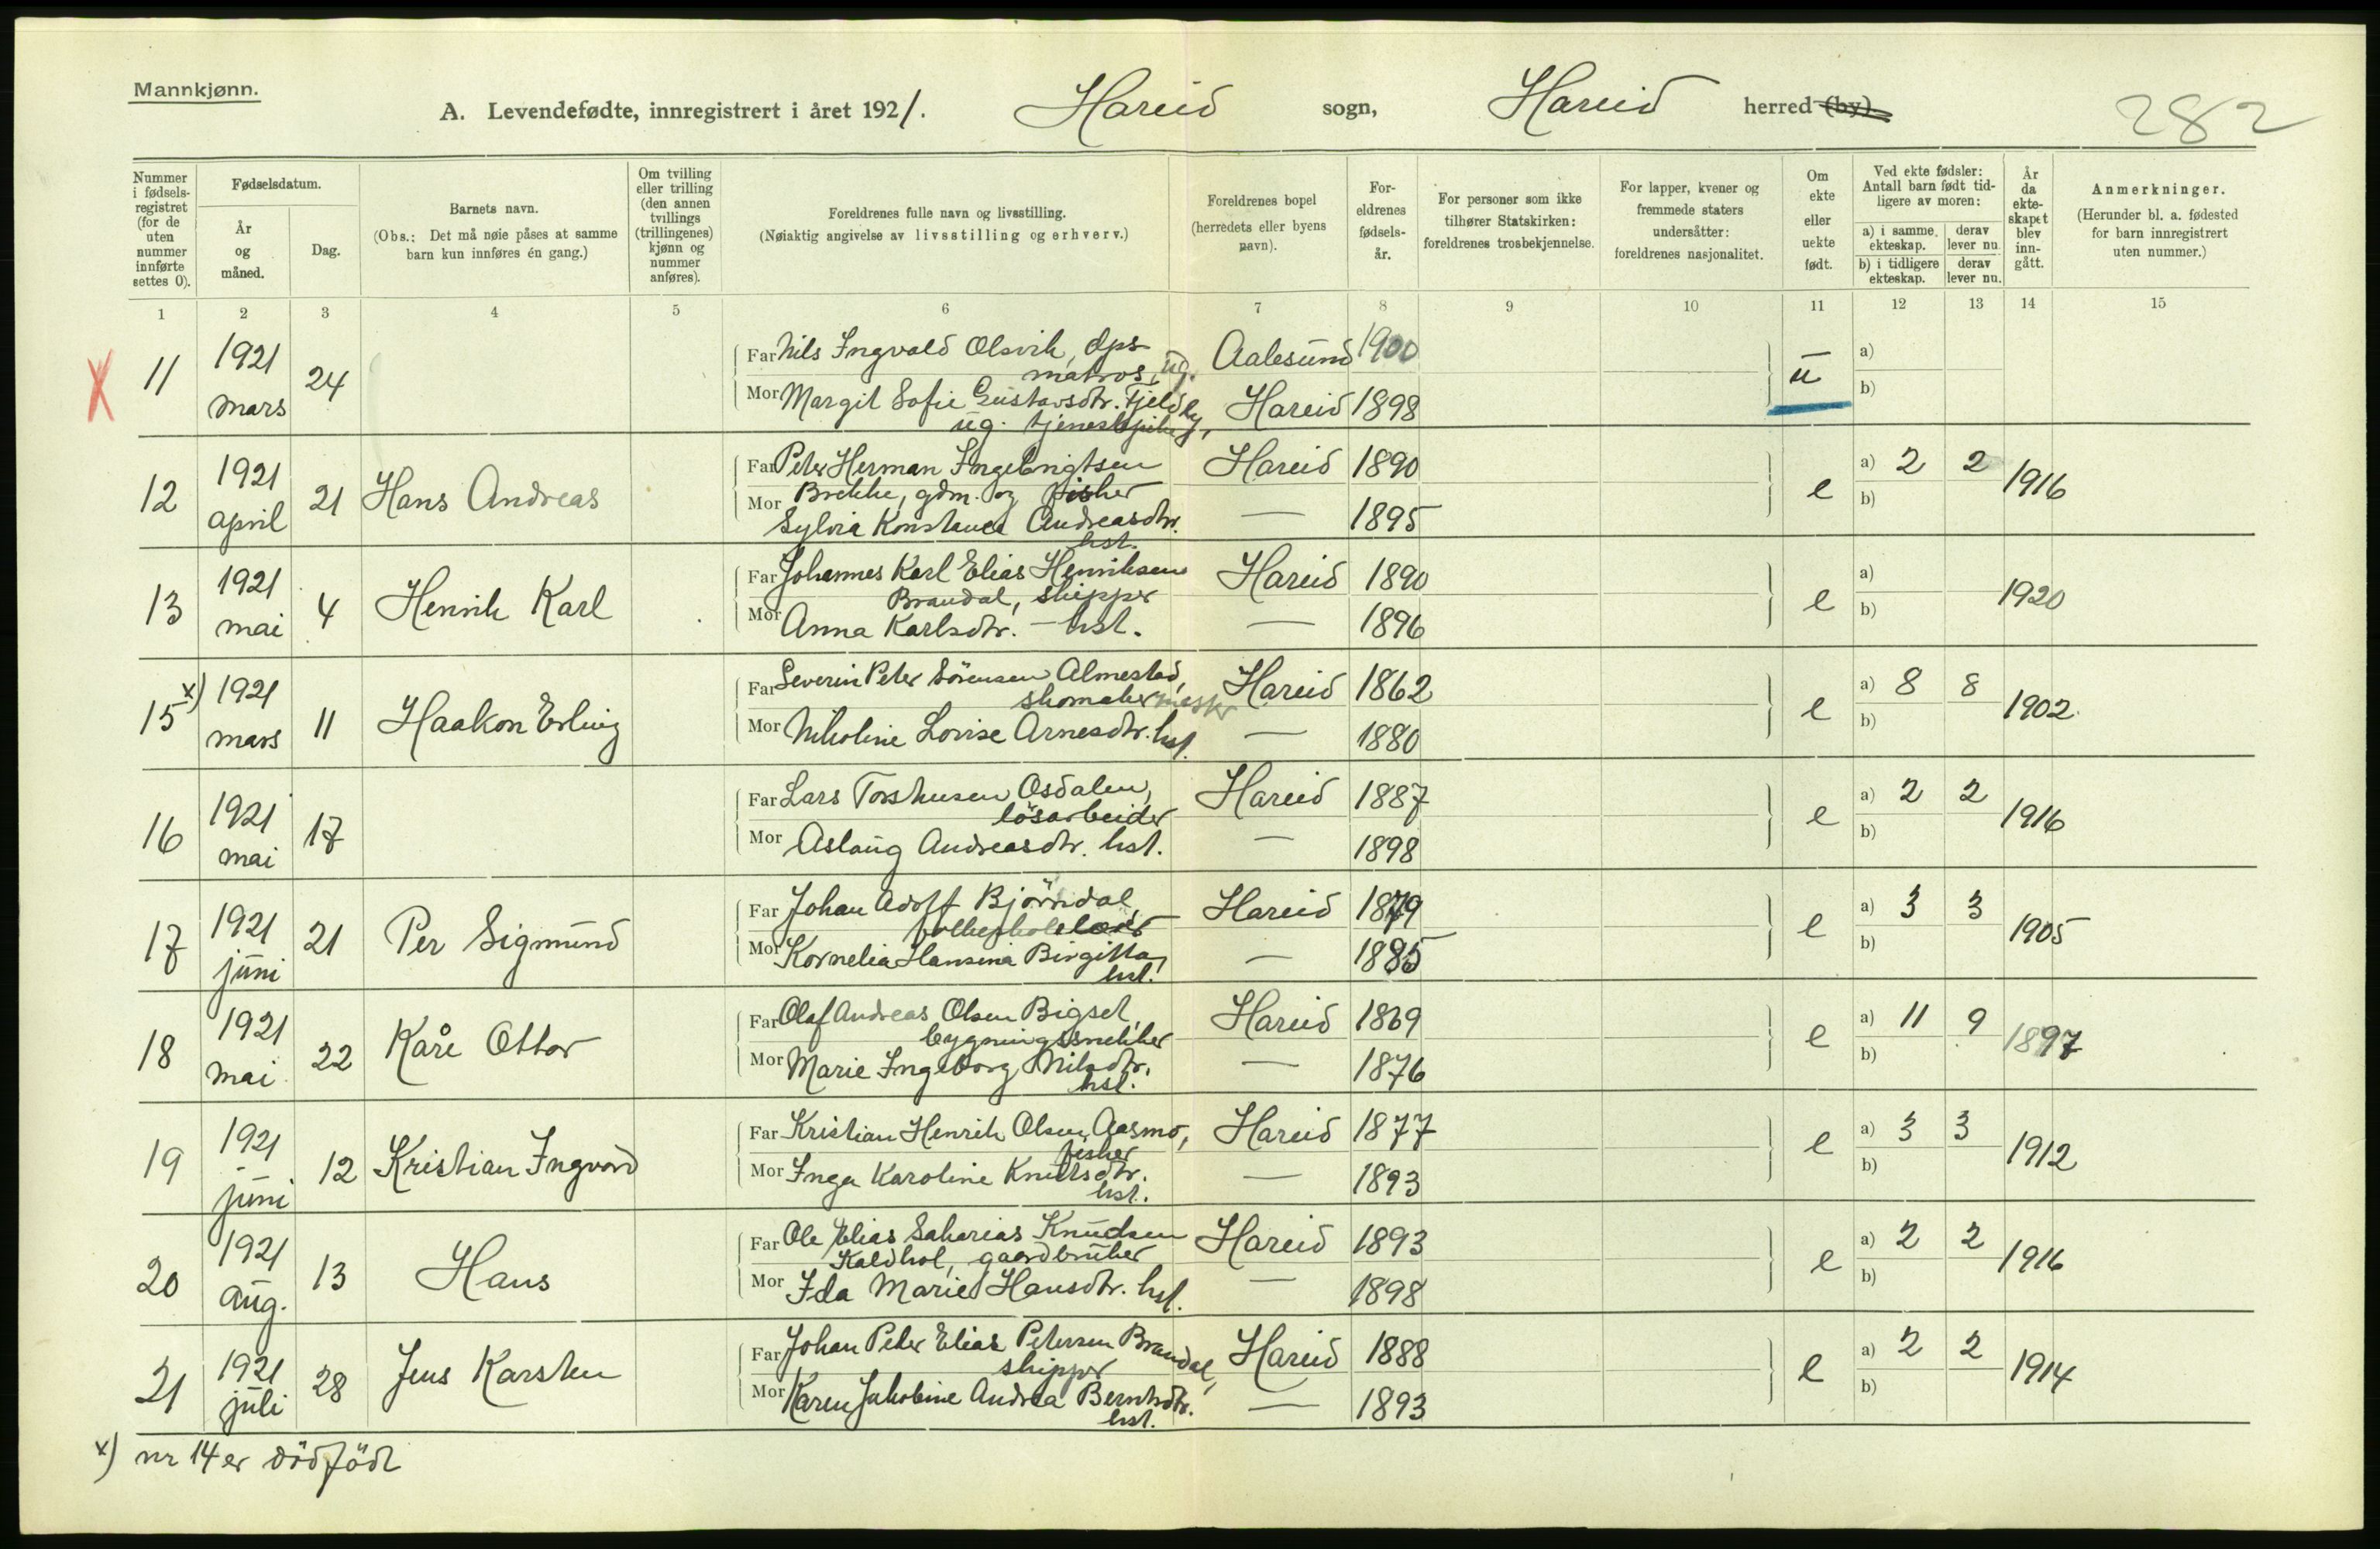 Mannkjønn.
A. Levendefødte, innregistrert i året 1921. Hareid sogn, Hareid herred (by).
282
Nummer i fødsels-registret (for de uten nummer innførte settes 0).
Fødselsdatum.
År og måned.
Dag.
Barnets navn.
(Obs.: Det må nøie påses at samme barn kun innføres én gang.)
Om tvilling eller trilling (den annen tvillings (trillingenes) kjønn og nummer anføres).
Foreldrenes fulle navn og livsstilling.
(Nøiaktig angivelse av livsstilling og erhverv.)
Foreldrenes bopel
(herredets eller byens navn).
For-eldrenes fødsels-år.
For personer som ikke tilhører Statskirken: foreldrenes trosbekjennelse.
For lapper, kvener og fremmede staters undersåtter: foreldrenes nasjonalitet.
Om ekte eller uekte født.
Ved ekte fødsler: Antall barn født tid-ligere av moren:
a) i samme ekteskap.
derav lever nu.
b) i tidligere ekteskap.
derav lever nu.
År da ekte-skapet blev inn-gått.
Anmerkninger.
(Herunder bl. a. fødested for barn innregistrert uten nummer.)
1 2 3 4 5 6 7 8 9 10 11 12 13 14 15
X 11 1921 mars 24
Far Nils Ingvald Olsvik, dps
matros, ug. Aalesund 1900
Mor Margit Sofie Gustavsdtr. Fjeldby,
ug. tjenestpike Hareid 1898
u a) b)
12 1921 april 21 Hans Andreas
Far Peter Herman Ingebrigtsen
Brekke, gdm. og fisker Hareid 1890
Mor Sylvia Konstance Andreasdtr.
hst. — 1895
e a) 2 2 b) 1916
13 1921 mai 4 Henrik Karl
Far Johannes Karl Elias Henriksen
Brandal, skipper Hareid 1890
Mor Anna Karlsdtr. — hst. — 1896
e a) b) 1920
15 x) 1921 mars 11 Haakon Erling
Far Severin Peter Sörensen Almestad,
skomakermester Hareid 1862
Mor Nikoline Lovise Arnesdtr. hst. — 1880
e a) 8 8 b) 1902
16 1921 mai 17
Far Lars Torshusen Osdalen,
lösarbeider Hareid 1887
Mor Aslaug Andreasdtr. hst. — 1898
e a) 2 2 b) 1916
17 1921 juni 21 Per Sigmund
Far Johan Adolf Björndal,
folkeskolelærer Hareid 1879
Mor Kornelia Hansina Birgitta,
hst. — 1885
e a) 3 3 b) 1905
18 1921 mai 22 Kåre Ottar
Far Olaf Andreas Olsen Bigset,
bygningssnekker Hareid 1869
Mor Marie Ingeborg Nilsdtr.
hst. — 1876
e a) 11 9 b) 1897
19 1921 juni 12 Kristian Ingvard
Far Kristian Henrik Olsen Aasmo,
fisker Hareid 1877
Mor Inga Karoline Knutsdtr.
hst. — 1893
e a) 3 3 b) 1912
20 1921 aug. 13 Hans
Far Ole Elias Sakarias Knudsen
Kaldhol, gaardbruker Hareid 1893
Mor Ida Marie Hansdtr. hst. — 1898
e a) 2 2 b) 1916
21 1921 juli 28 Jens Karsten
Far Johan Peter Elias Petersen Brandal,
skipper Hareid 1888
Mor Karen Jakobine Andrea Berntsdtr.
hst. — 1893
e a) 2 2 b) 1914
x) nr 14 er dödfödt